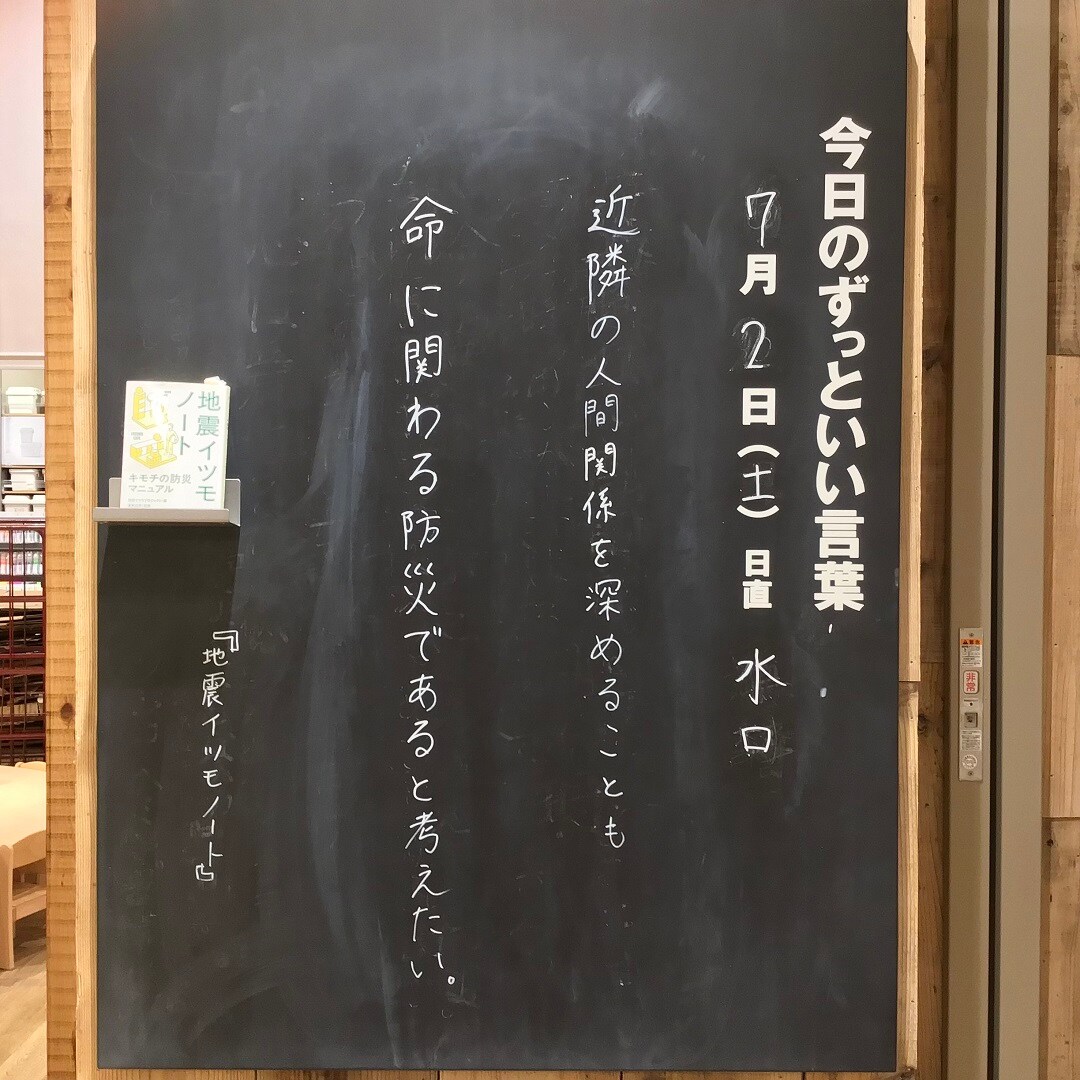 今日のずっといい言葉
7月2日(土) 日直 水口
近隣の人間関係を深めることも
命に関わる防災であると考えたい。
『地震イツモノート』
地震イツモ
ノート
キモチの防災
マニュアル
非常